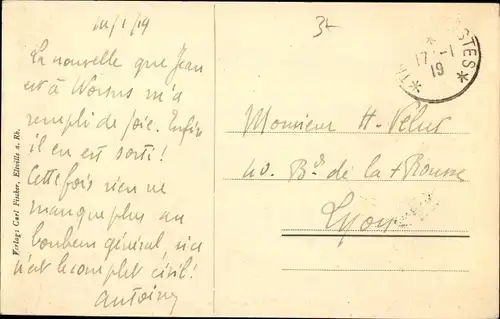 14/1/19
La nouvelle que Jean
est à Worms m'a
rempli de joie. Enfin
il en est sorti!
Cette fois rien ne
manque plus au
bonheur général si ce
n'est le complet civil!
Antoine
Verlag: Carl Fischer, Eltville a. Rh.
STES *
17 -1
19
Monsieur H. Vélut
40. Bd de la + Rousse
Lyon